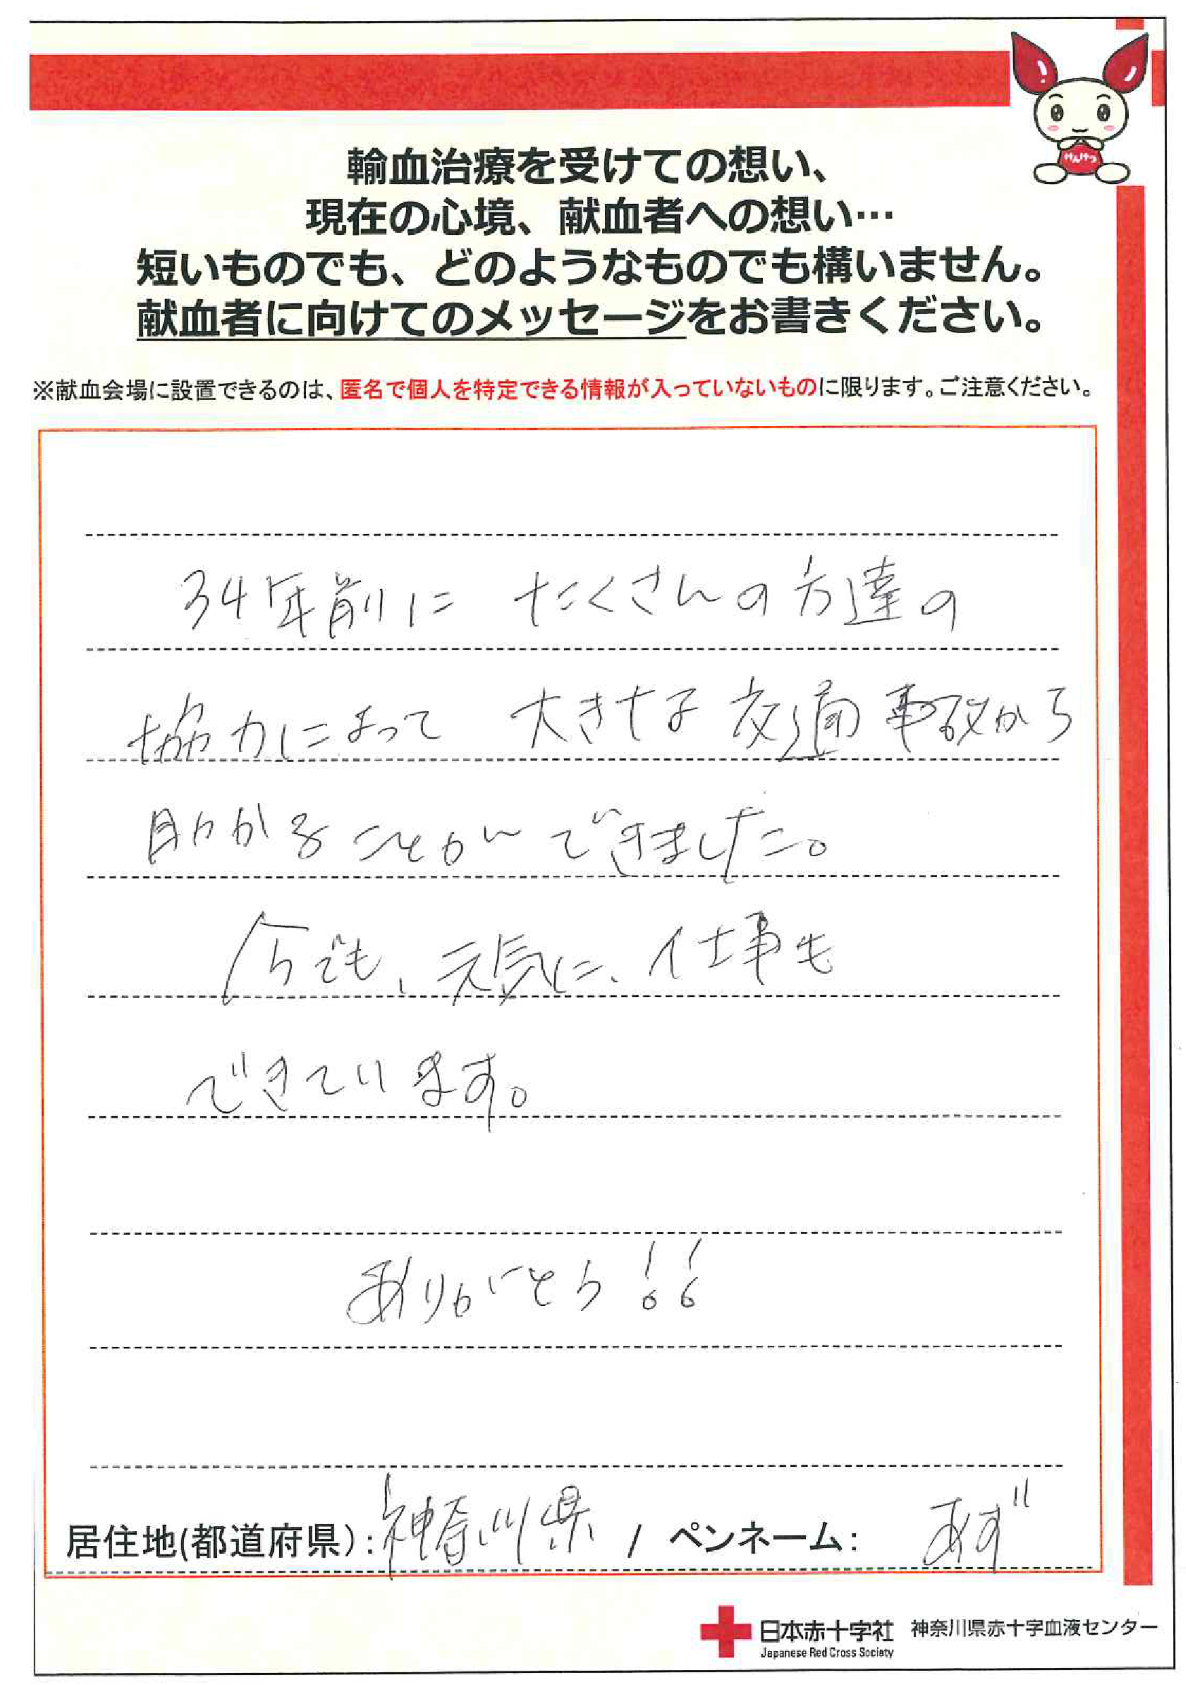 けんけつ
輸血治療を受けての想い、
現在の心境、献血者への想い…
短いものでも、どのようなものでも構いません。
献血者に向けてのメッセージをお書きください。
※献血会場に設置できるのは、匿名で個人を特定できる情報が入っていないものに限ります。ご注意ください。
34年前に たくさんの方達の
協力によって 大きな交通事故から
助かることができました。
今でも、元気に、仕事も
できています。
ありがとう!!
居住地(都道府県):神奈川県 / ペンネーム: あず
日本赤十字社 神奈川県赤十字血液センター
Japanese Red Cross Society